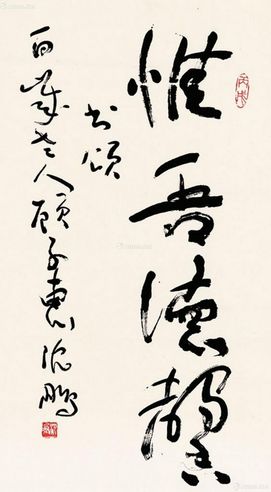 惟吾德馨
书颂
百岁老人顾子惠沈鹏